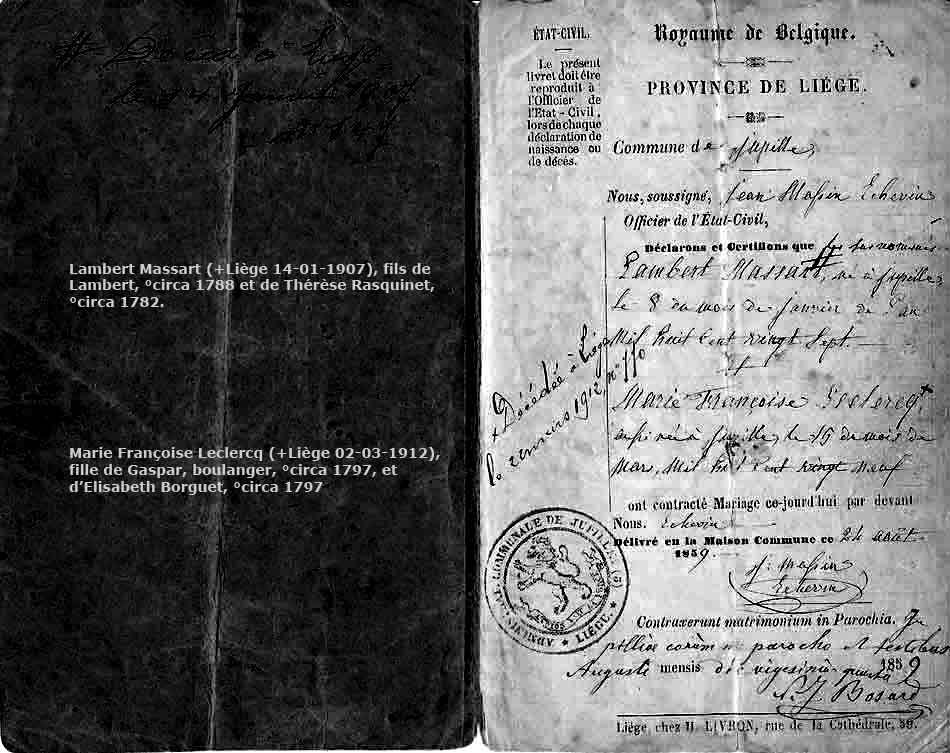 Lambert Massart (+Liège 14-01-1907), fils de
Lambert, °circa 1788 et de Thérèse Rasquinet,
°circa 1782.
Marie Françoise Leclercq (+Liège 02-03-1912),
fille de Gaspar, boulanger, °circa 1797, et
d’Elisabeth Borguet, °circa 1797
ÉTAT-CIVIL.
Le présent
livret doit être
reproduit à
l'Officier de
l'Etat-Civil,
lors de chaque
déclaration de
naissance ou
de décès.
Royaume de Belgique.
PROVINCE DE LIÉGE.
Commune de Jupille
Nous, soussigné, Jean Massin Echevin
Officier de l'État-Civil,
Déclarons et Certifions que les susnommés
Lambert Massart # né à Jupille
le 8 du mois de janvier de l'an
Mil huit cent vingt sept.
et
Marie Françoise Leclercq +
aussi née à Jupille, le 15 du mois de
Mars, Mil huit cent vingt neuf
+ Décédée à Liége
le 2 mars 1912, n° 770
ont contracté Mariage ce-jourd'hui par devant
Nous. Echevin
Délivré en la Maison Commune ce 24 août
1859.
J. Massin
Echevin
COMMUNALE DE JUPILLE
LIÉGE.
Contraxerunt matrimonium in Parochia. Ju
pilliæ coràm me parocho et testibus
Augusti mensis die vigesimâ quartâ 1859
P. J. Bosard
Liége chez H. LIVRON, rue de la Cathédrale, 59.